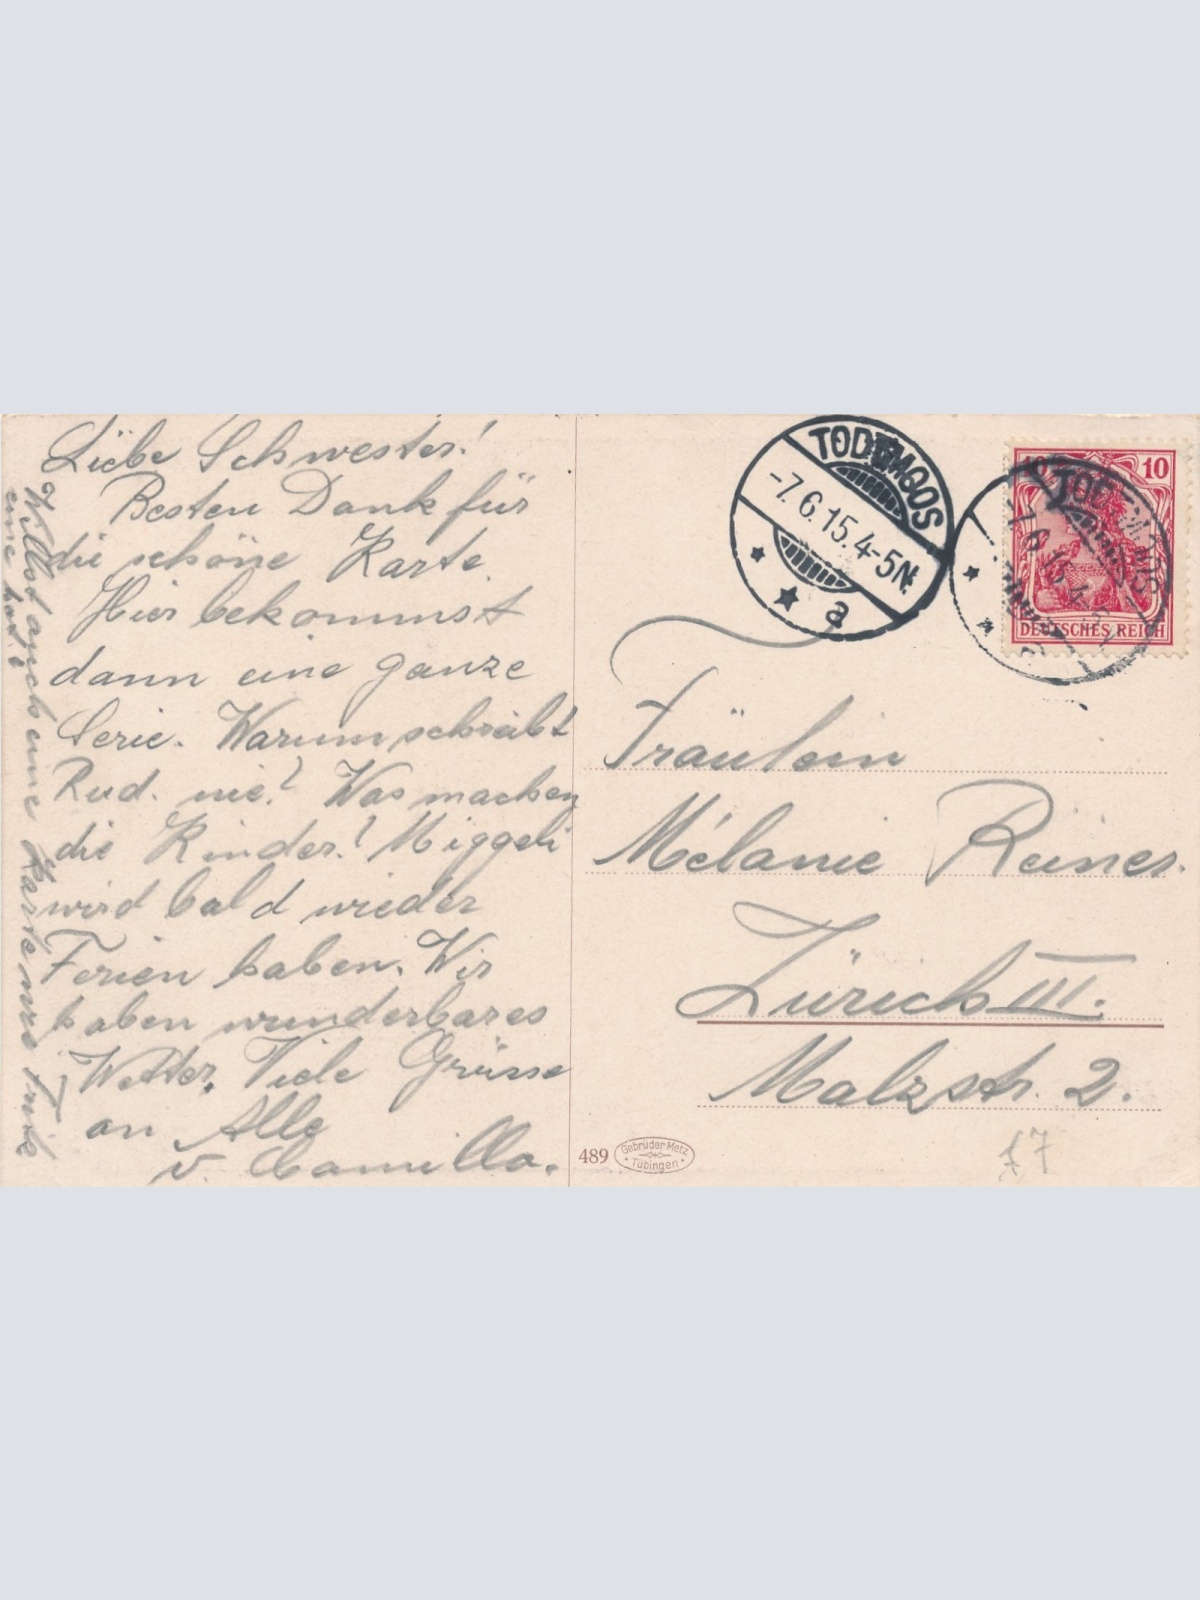 Liebe Schwester!
Besten Dank für
die schöne Karte.
Hier bekommst
dann eine ganze
Serie. Warum schreibt
Rud. nie? Was machen
die Kinder? Miggeli
wird bald wieder
Ferien haben. Wir
haben wunderbares
Wetter. Viele Grüsse
an Alle
v. Camilla.
Willst auch eine Karte wie
eine hat?
TODTMOOS
-7.6.15.4-5N.
a
10 10
DEUTSCHES REICH
Fräulein
Mélanie Reiner.
Zürich III.
Malzstr. 2.
489 Gebrüder Metz
Tübingen